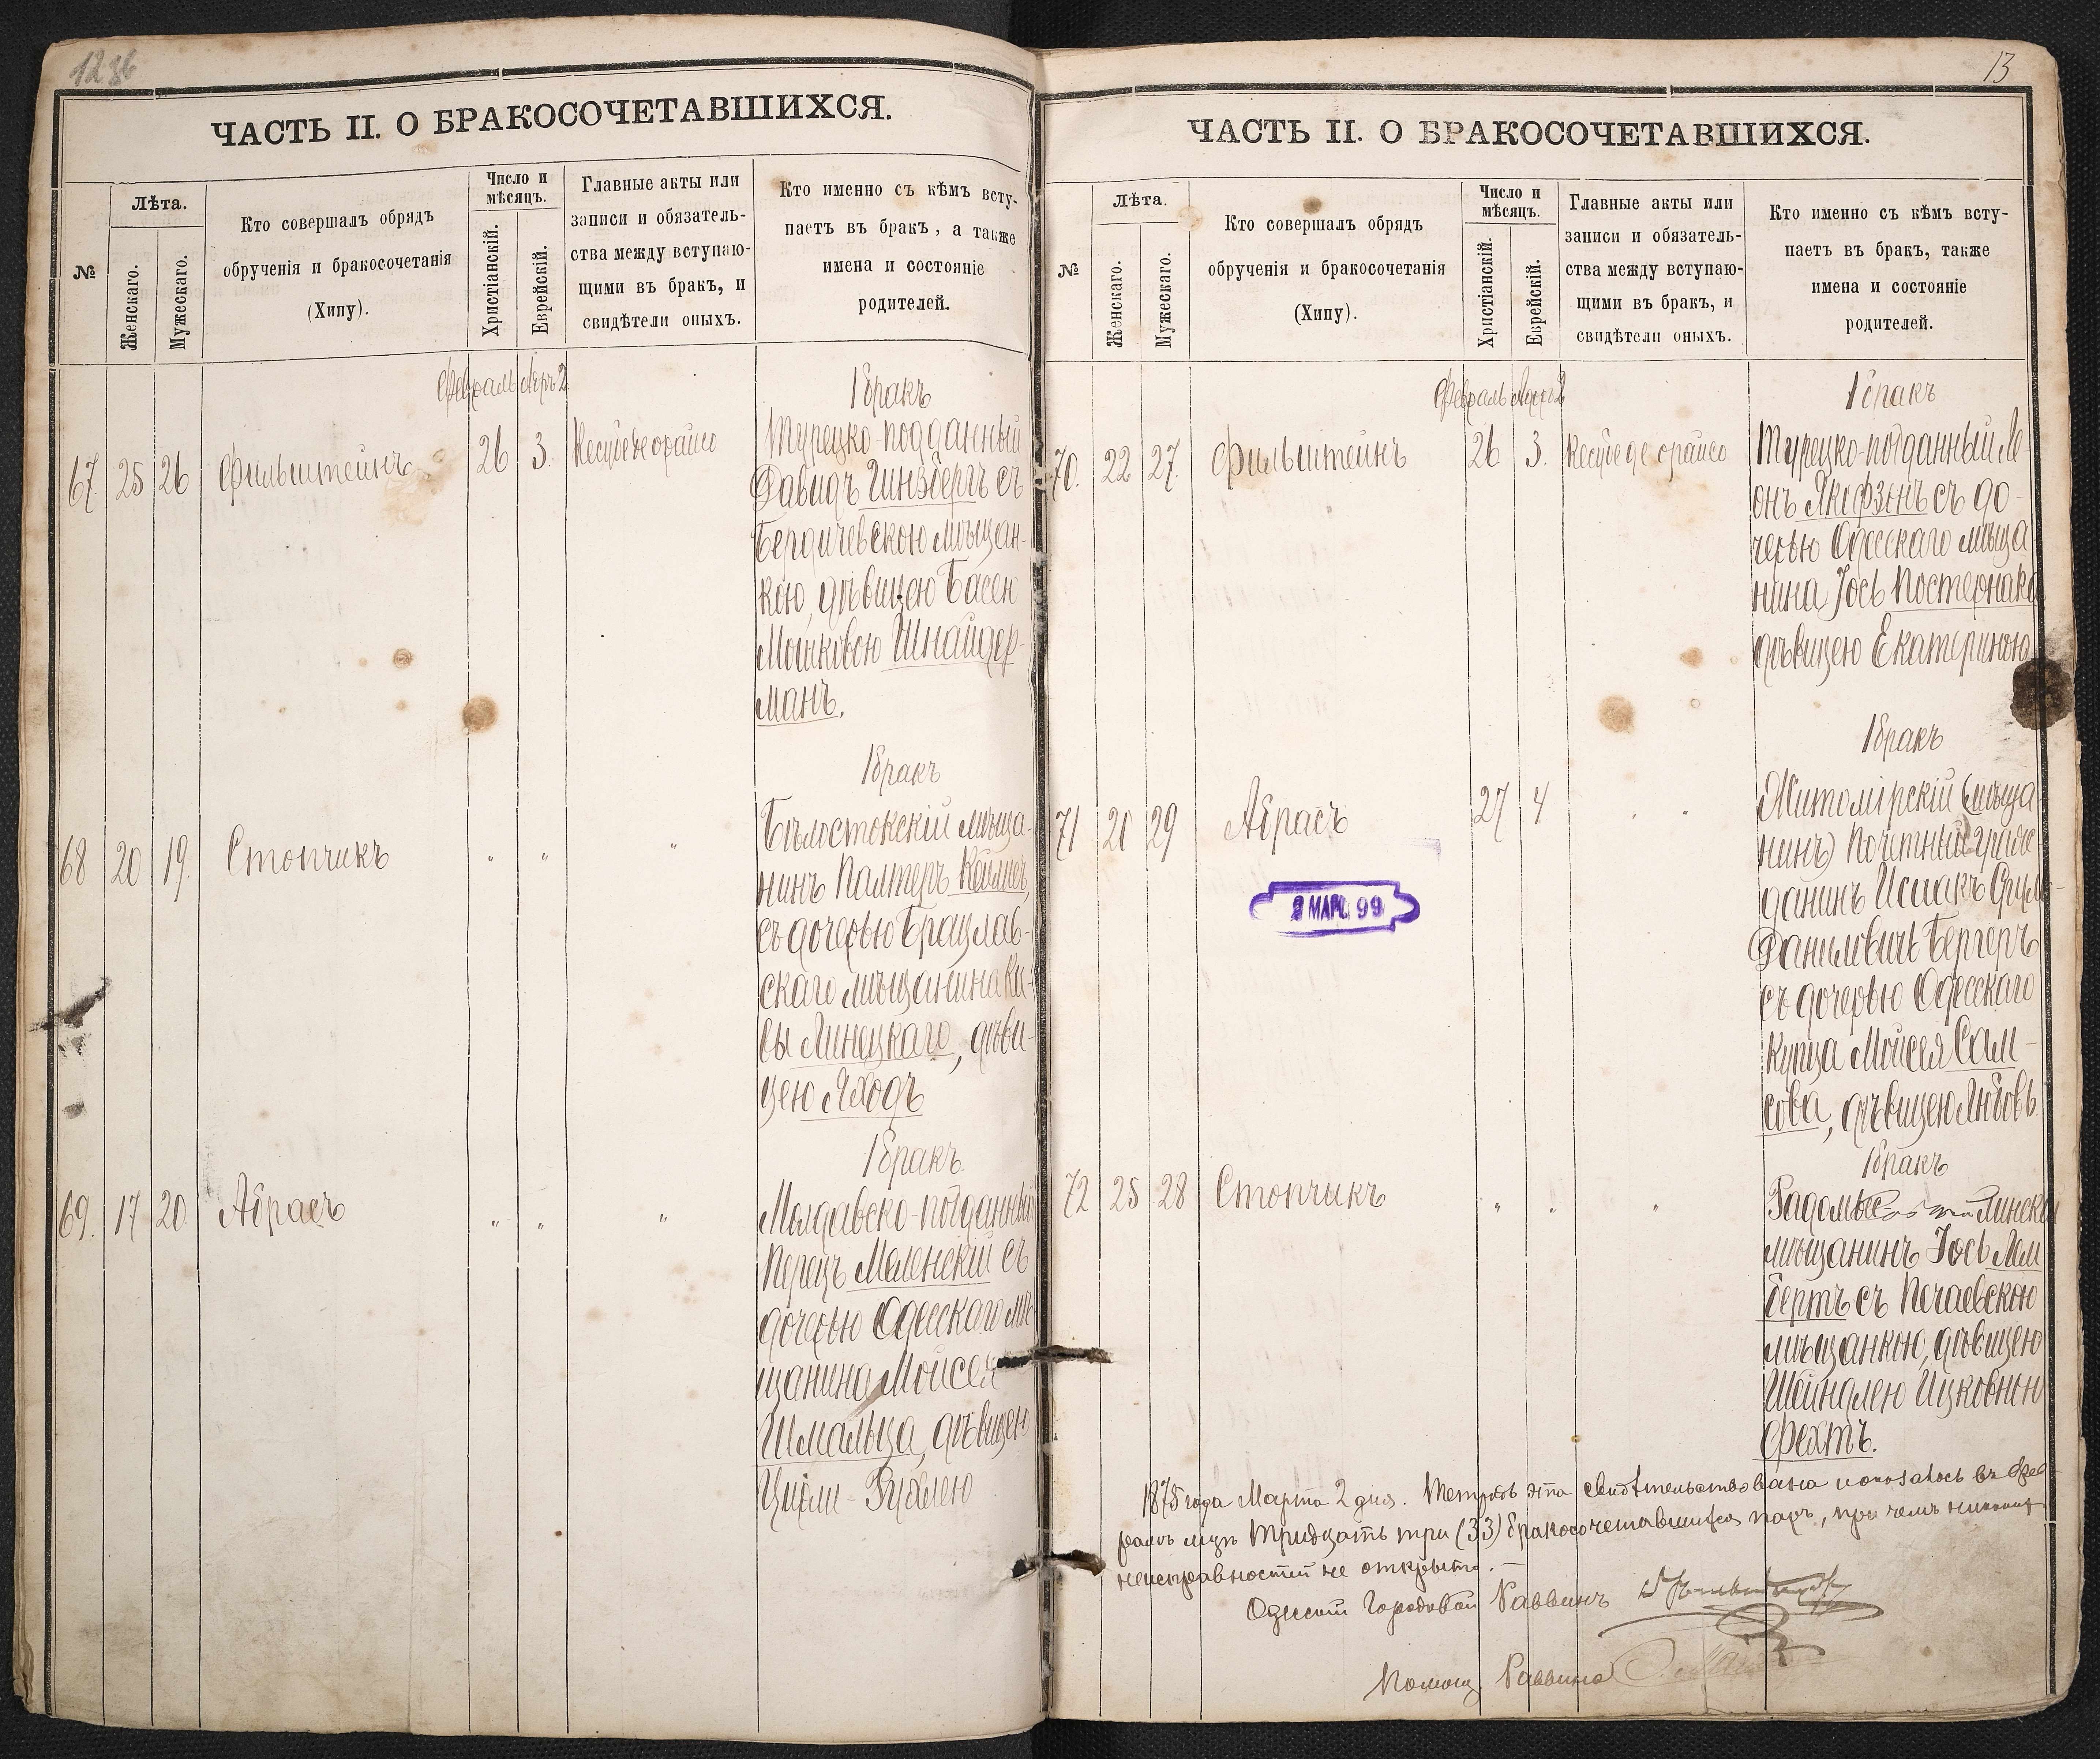 12
13
ЧАСТЬ II. О БРАКОСОЧЕТАВШИХСЯ.
№
Лѣта.
Женскаго.
Мужескаго.
Кто совершалъ обрядъ
обрученія и бракосочетанія
(Хипу).
Число и
мѣсяцъ.
Христіанскій.
Еврейскій.
Главные акты или
записи и обязатель-
ства между вступаю-
щими въ бракъ, и
свидѣтели оныхъ.
Кто именно съ кѣмъ всту-
паетъ въ бракъ, а также
имена и состояніе
родителей.
Февраль Адръ 2
1 бракъ
67. 25 26 Фильштейнъ 26 3.
Турецко-подданный
Давидъ Гинзбергъ съ
Бердичевскою мѣщан-
кою, дѣвицею Басею
Мошковою Шнайдер-
манъ.
1 бракъ
68 20 19. Стопчикъ " " "
Бѣлостокскій мѣща-
нинъ Палтеръ
съ дочерью Брацлав-
скаго мѣщанина Ки-
сы Линецкаго, дѣви-
цею Яходъ
1 бракъ
69. 17 20 Абрасъ " " "
Молдавско-подданный
Перецъ Меленскій съ
дочерью Одесскаго мѣ-
щанина Мойсея
Шмальца, дѣвицею
Рухлею
ЧАСТЬ II. О БРАКОСОЧЕТАВШИХСЯ.
№
Лѣта.
Женскаго.
Мужескаго.
Кто совершалъ обрядъ
обрученія и бракосочетанія
(Хипу).
Число и
мѣсяцъ.
Христіанскій.
Еврейскій.
Главные акты или
записи и обязатель-
ства между вступаю-
щими въ бракъ, и
свидѣтели оныхъ.
Кто именно съ кѣмъ всту-
паетъ въ бракъ, также
имена и состояніе
родителей.
Февраль Адръ 2
1 бракъ
70. 22 27. Фильштейнъ 26 3.
Турецко-подданный Ле-
онъ Якобзонъ съ до-
черью Одесскаго мѣща
нина Іось Постернака
дѣвицею Екатериною
1 бракъ
71 20 29 Абрасъ 27 4 " "
Житомірскій (мѣща-
нинъ) Почетный граж-
данинъ Исаакъ
Даниловичъ Бергеръ
съ дочерью Одесскаго
купца Мойсея Сам-
сова, дѣвицею Любовь
2 МАРС 99
1 бракъ
72 25 28 Стопчикъ " " "
мѣщанинъ Іось Лам
бертъ съ Печаевскою
мѣщанкою, дѣвицею
Шейндлею Ицковною
Фехтъ.
1875 года Марта 2 дня. Тетрадь эта свидѣтельствована и оказалось въ Фев-
ралѣ мцѣ тридцать три (33) бракосочетавшихся паръ, при чемъ никакихъ
неисправностей не открыто.
Одесскій Городовой Раввинъ
Помощ. Раввина